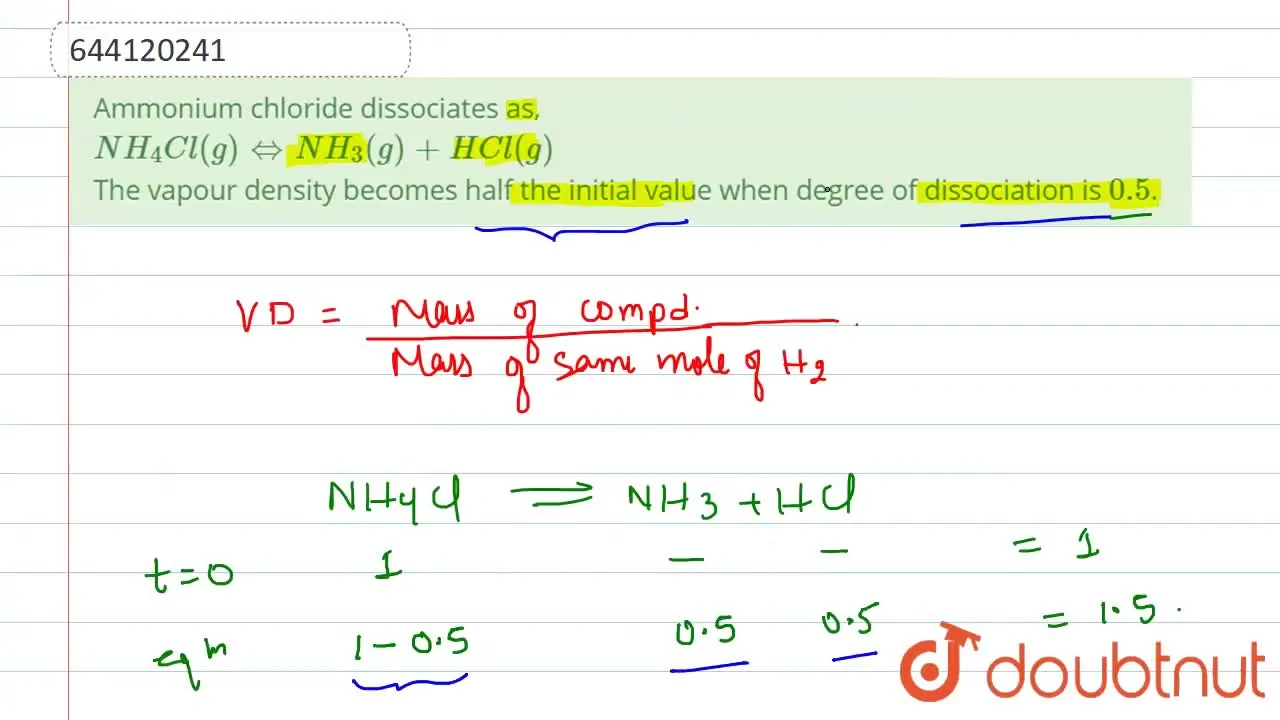 644120241
Ammonium chloride dissociates as,
NH₄Cl(g) ⇔ NH₃(g) + HCl(g)
The vapour density becomes half the initial value when degree of dissociation is 0.5.
VD = Mass of compd.
Mass of same mole of H₂
NH4Cl ⇌ NH3 + HCl
t=0 1 — — = 1
eqᵐ 1-0.5 0.5 0.5 = 1.5
doubtnut